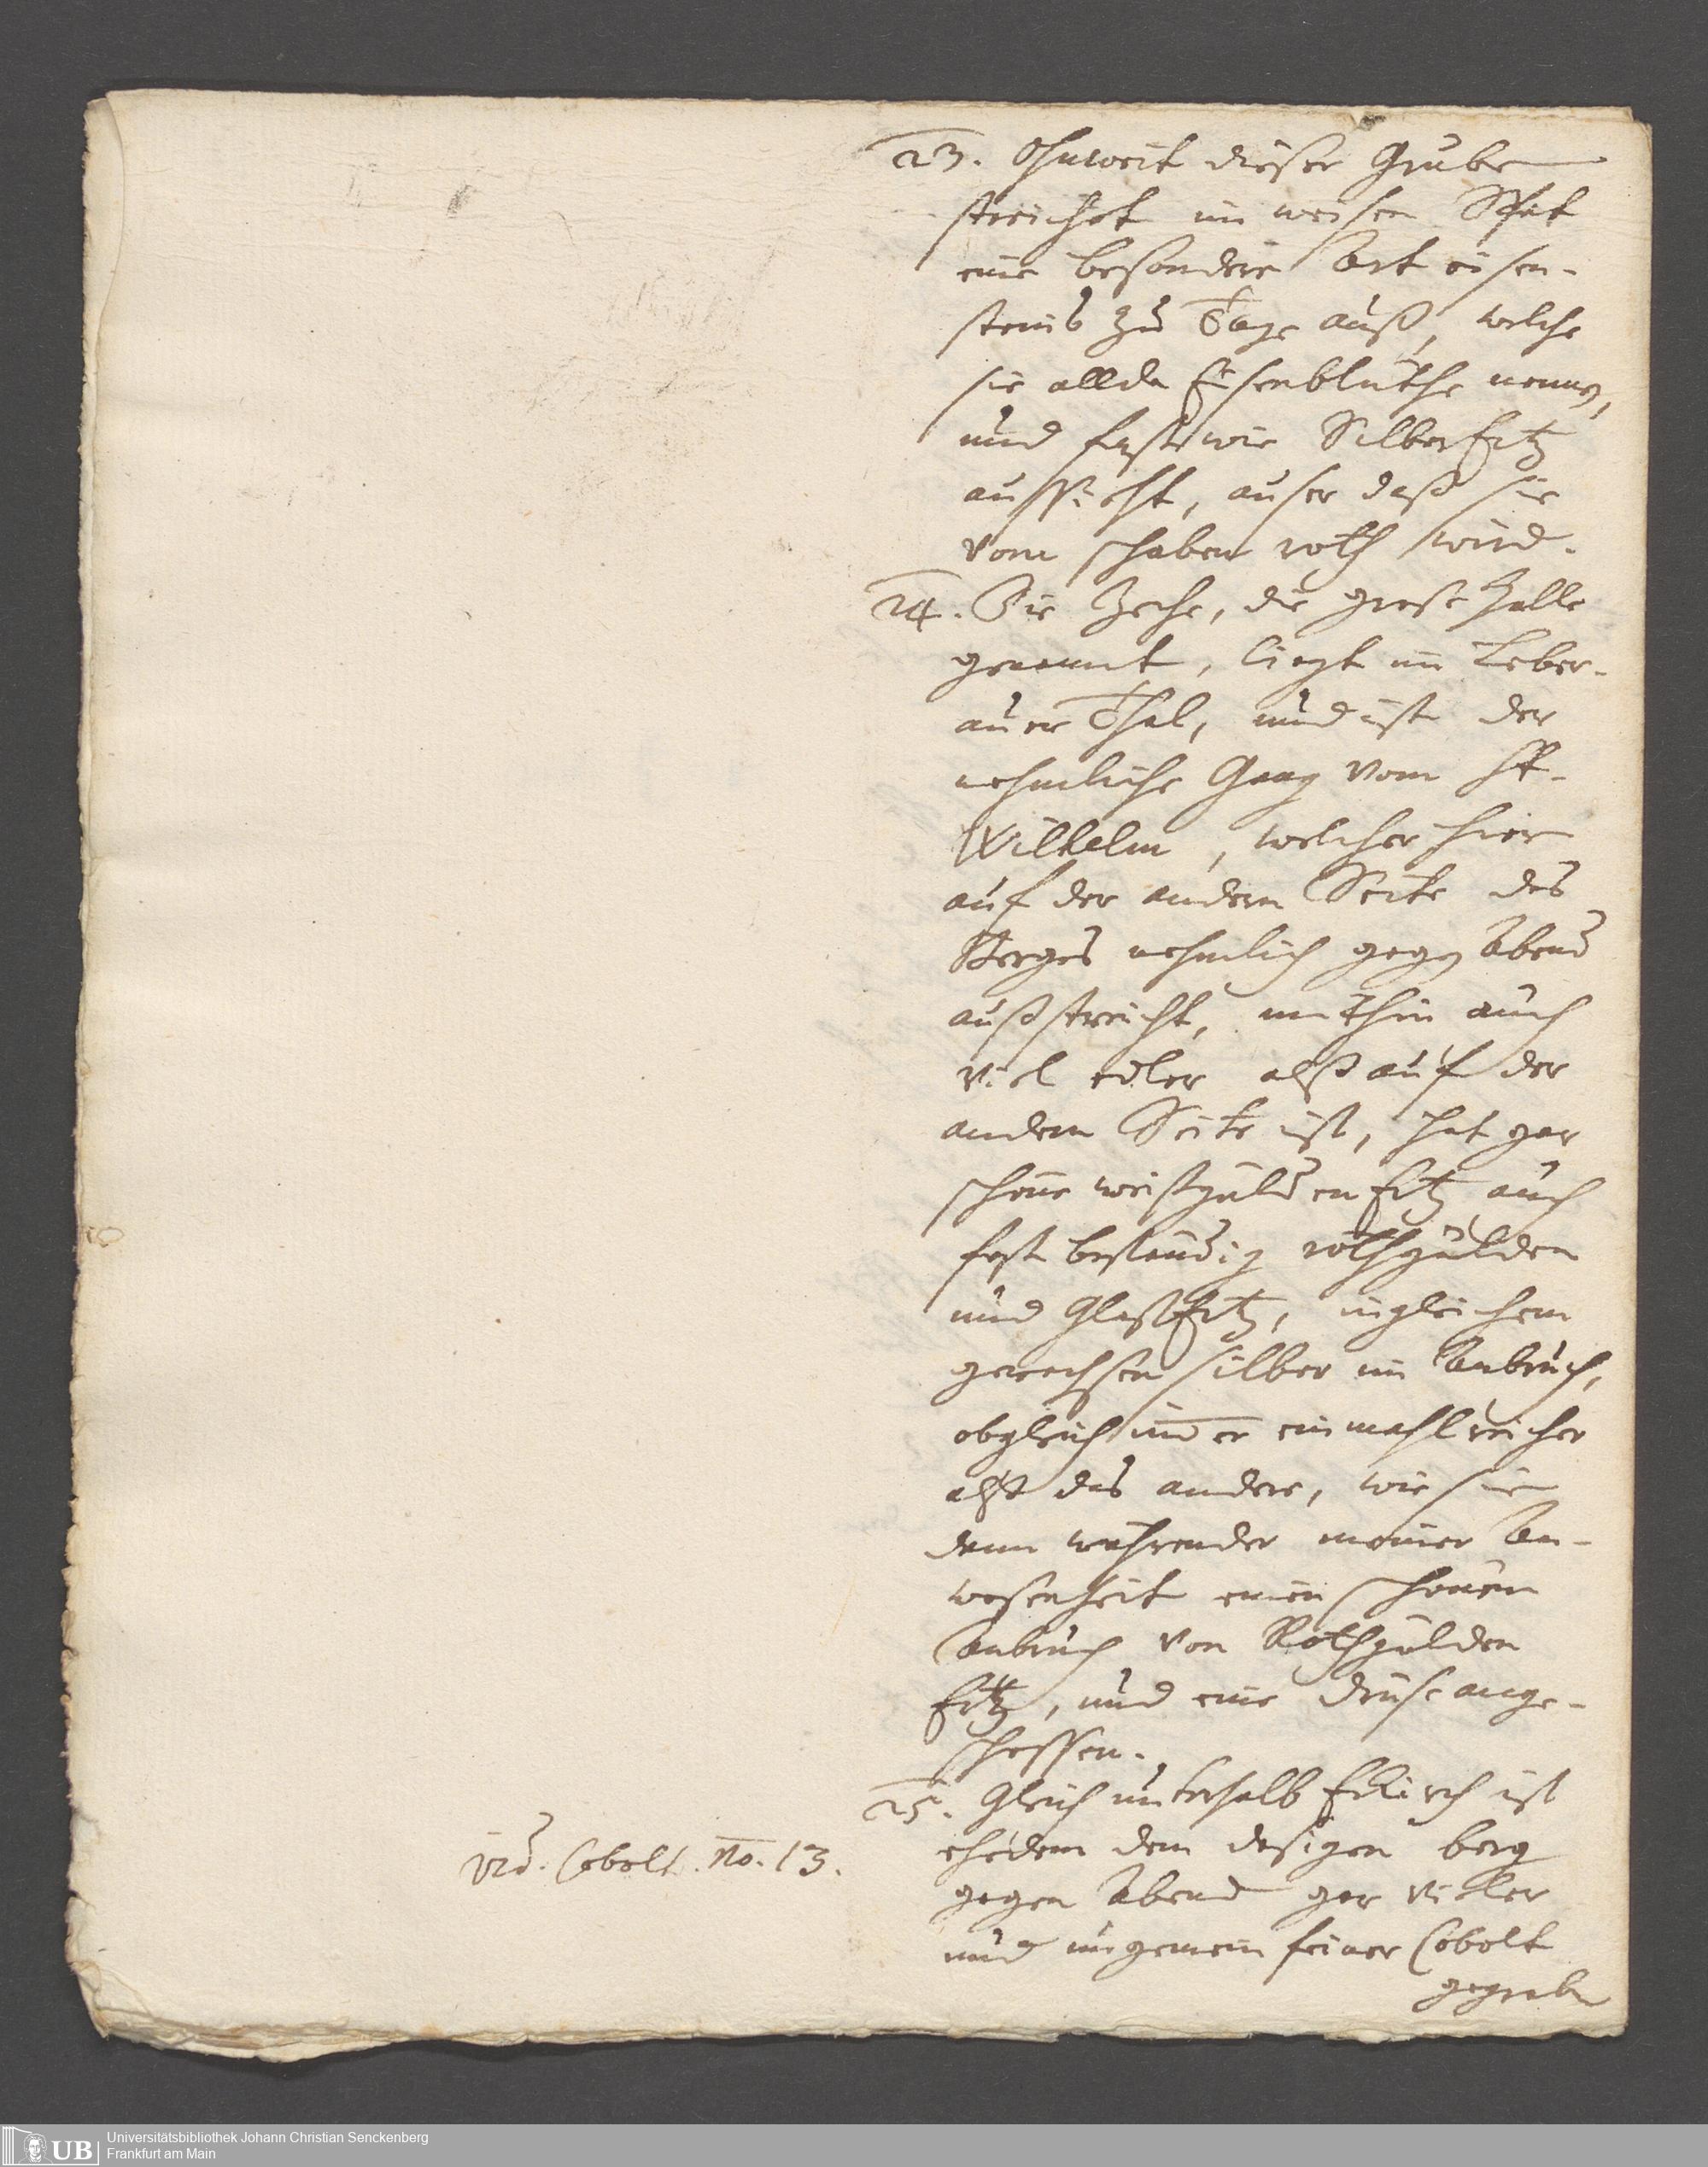 23. Ohnweit dieser Grube
streichet im weisen Spat
eine besondere Art eisen-
steins zu Tage auß, welche
sie allda Eisenblüthe nennen,
und fast wie Silber Ertz
aussieht, auser daß sie
vom schaben roth wird.
24. Die Zeche, die große Halle
genannt, liegt im Leber-
auer Thal, und ist der
nehmliche Gang vom St.
Wilhelm, welcher hier
auf der andern Seite des
Berges nehmlich gegen Abend
außstreicht, mithin auch
viel edler alß auf der
andern Seite ist, hat gar
schöne weißgülden Ertz auch
fast beständig rothgülden
und Glaß Ertz, ingleichem
gewachsen silber im Anbruch,
obgleich immer einmahl reicher
alß das andere, wie sie
denn währender meiner An-
wesenheit einen schönen
Anbruch von Rothgülden
Ertz, und eine Druse ange-
schossen.
25. Gleich unterhalb Eckirch ist
ehedem dem dasigen berg
gegen Abend gar vieler
und ungemein feiner Cobolt
gegraben
vid. Cobolt. No. 13.
UB Universitätsbibliothek Johann Christian Senckenberg
Frankfurt am Main